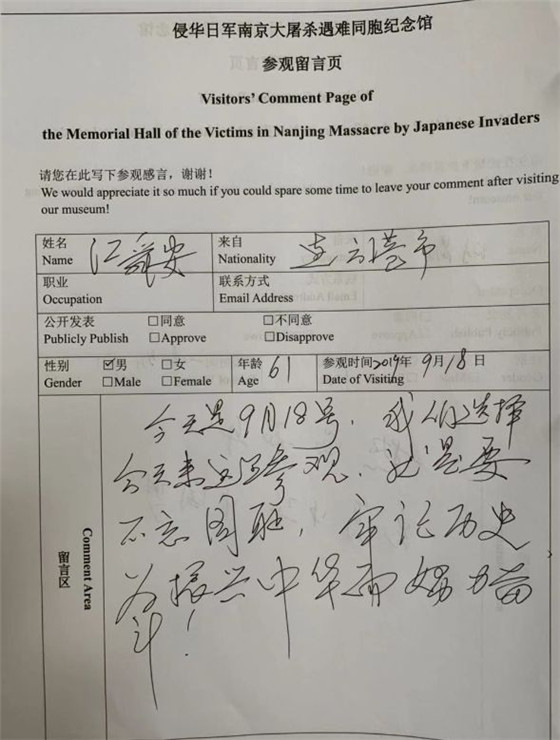 侵华日军南京大屠杀遇难同胞纪念馆
参观留言页
Visitors' Comment Page of
the Memorial Hall of the Victims in Nanjing Massacre by Japanese Invaders
请您在此写下参观感言，谢谢！
We would appreciate it so much if you could spare some time to leave your comment after visiting
our museum!
姓名 江 安 来自 连云港市
Name Nationality
职业 联系方式
Occupation Email Address
公开发表 □同意 □不同意
Publicly Publish □Approve □Disapprove
性别 ☑男 □女 年龄 61 参观时间2019年9月18日
Gender □Male □Female Age Date of Visiting
留言区 Comment Area
今天是9月18号，我们选择
今天来这还参观，也是要
不忘国耻，牢记历史
为振兴中华而努力奋
斗！